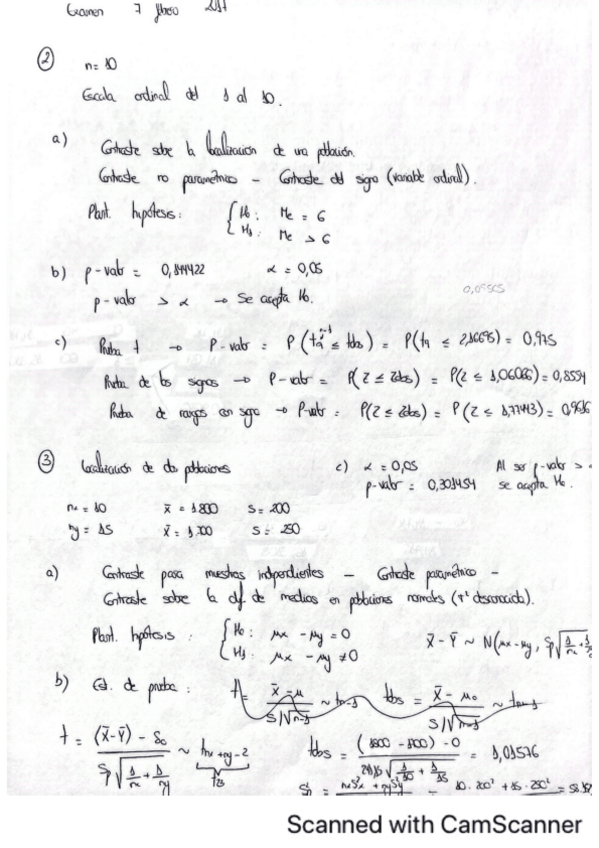 Examen 7 2017
② n = 10
Escala ordinal del 1 al 10.
a) Contraste sobre la localización de una población.
Contraste no paramétrico - Contraste del signo (variable ordinal).
Plant. hipótesis: { H₀: Me = 6
H₁: Me > 6
b) p-valor = 0,144422 α = 0,05
0,05505
p-valor > α → Se acepta H₀.
c) Prueba t → P-valor = P(t ≤ tobs) = P(t₉ ≤ 2,16695) = 0,975
Prueba de los signos → P-valor = P(Z ≤ Zobs) = P(Z ≤ 1,06066) = 0,8554
Prueba de rangos con signo → P-valor = P(Z ≤ Zobs) = P(Z ≤ 1,77443) = 0,9616
③ Localización de dos poblaciones
c) α = 0,05 Al ser p-valor >
p-valor = 0,301454 se acepta H₀.
nx = 10 x̄ = 1.800 S = 200
ny = 15 x̄ = 1.700 S = 250
a) Contraste para muestras independientes - Contraste paramétrico -
Contraste sobre la dif. de medias en poblaciones normales (σ² desconocida).
Plant. hipótesis: { H₀: μx - μy = 0
H₁: μx - μy ≠ 0
X̄ - Ȳ ~ N(μx - μy, Sp√(1/nx + 1/
b) Est. de prueba: t = (X̄ - μ)/(S/√n-1) ~ tn-1 tobs = (X̄ - μ₀)/(S/√n-1) ~ tn-1
t = ((X̄ - Ȳ) - δ₀)/(Sp√(1/nx + 1/ny)) ~ tnx + ny - 2
tobs = - 0)/( √(1/10 + 1/15)) = 1,01576
Sp = = 10 · 200² + 15 · 250² =
Scanned with CamScanner